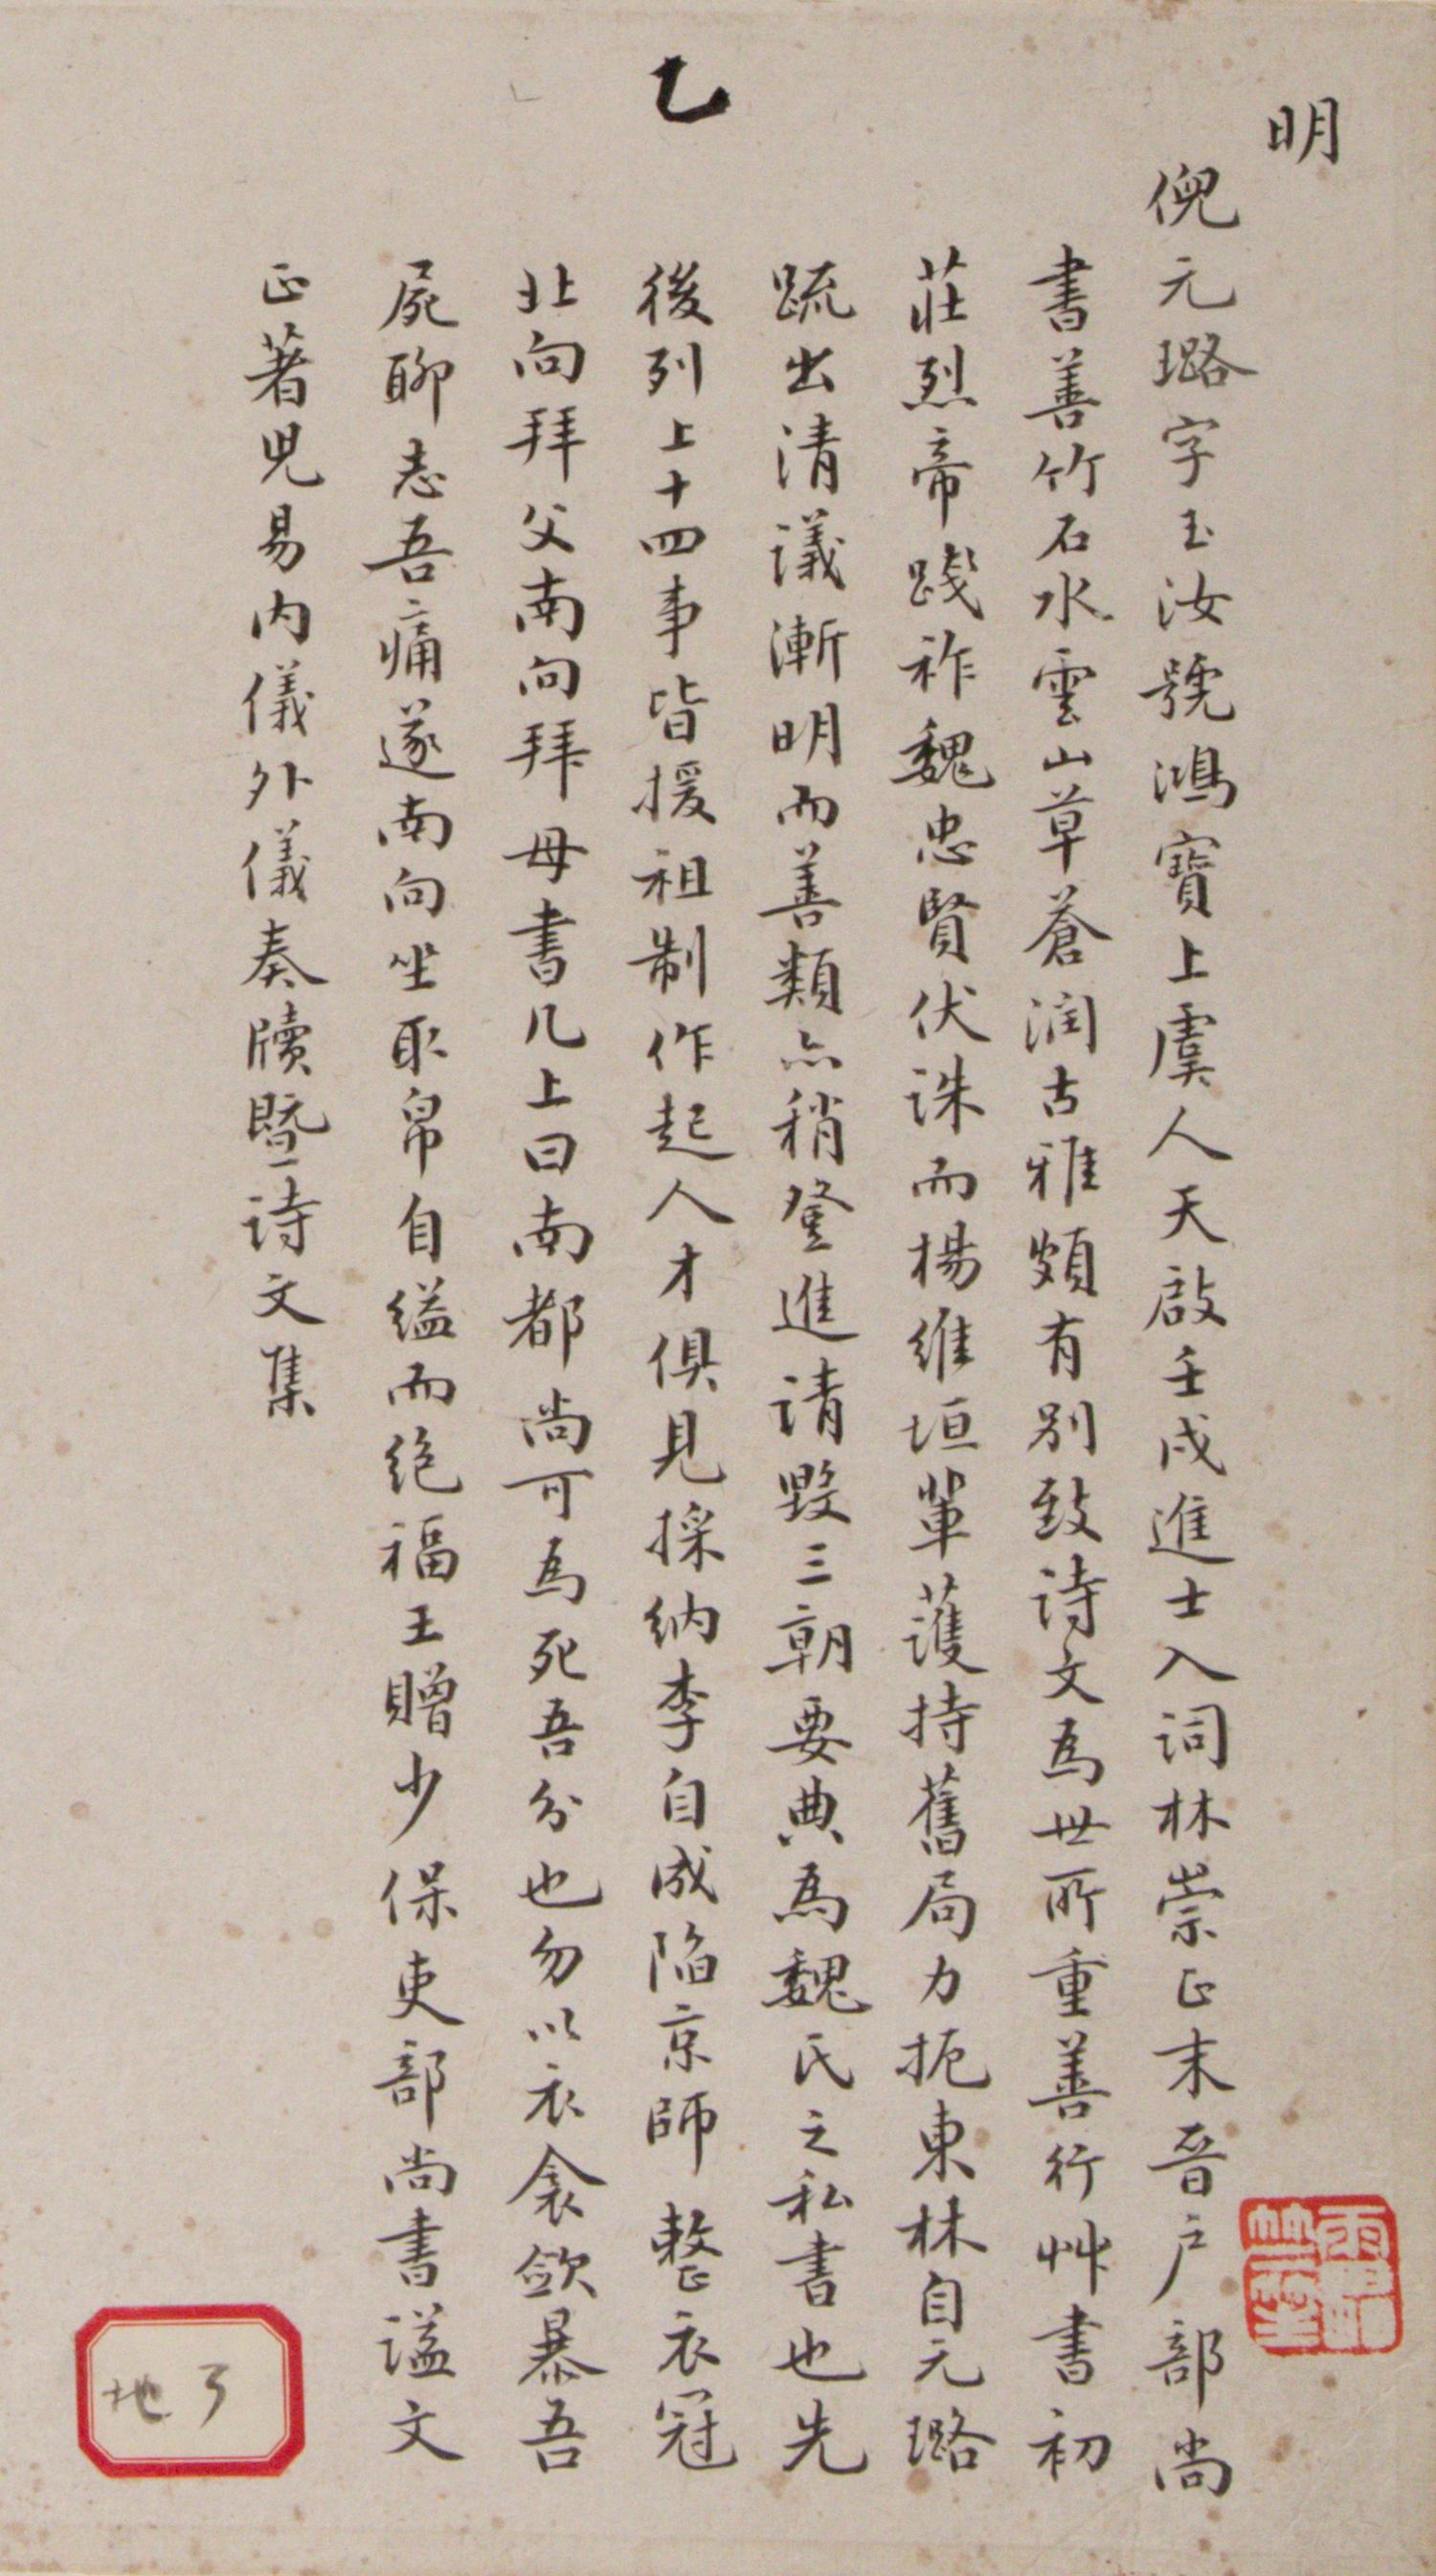 明
倪元璐字玉汝號鴻寶上虞人天啟壬戌進士入詞林崇正末晉户部尚
書善竹石水雲山草蒼潤古雅頗有别致詩文為世所重善行艸書初
莊烈帝踐祚魏忠賢伏誅而楊維垣輩護持舊局力扼東林自元璐
疏出清議漸明而善類亦稍登進請毀三朝要典為魏氏之私書也先
後列上十四事皆援祖制作起人才俱見採納李自成陷京師整衣冠
北向拜父南向拜母書几上曰南都尚可為死吾分也勿以衣衾斂暴吾
屍聊志吾痛遂南向坐取帛自縊而絶福王贈少保吏部尚書謚文
正著兒易内儀外儀奏牘暨詩文集
乙